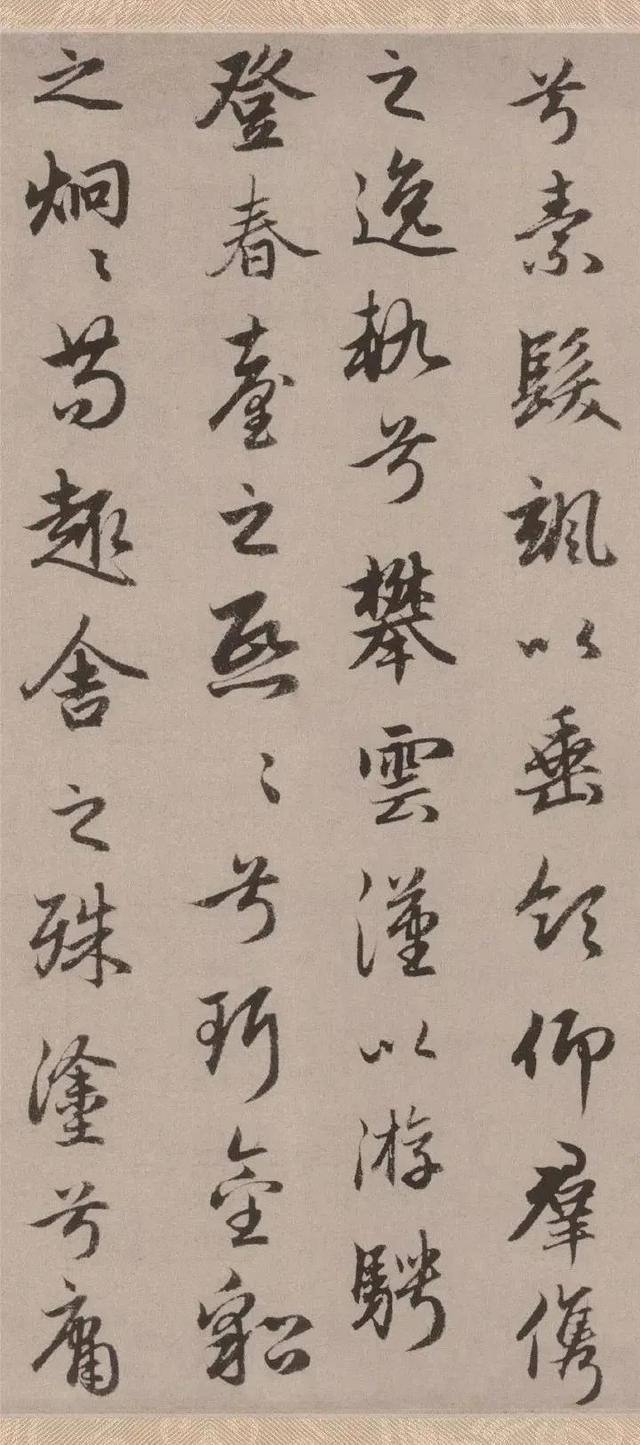 兮素髮颯以垂領仰群儁
之逸執兮攀雲漢以游騁
登春臺之熙〻兮珥金貂
之炯〻苟趣舍之殊塗兮庸